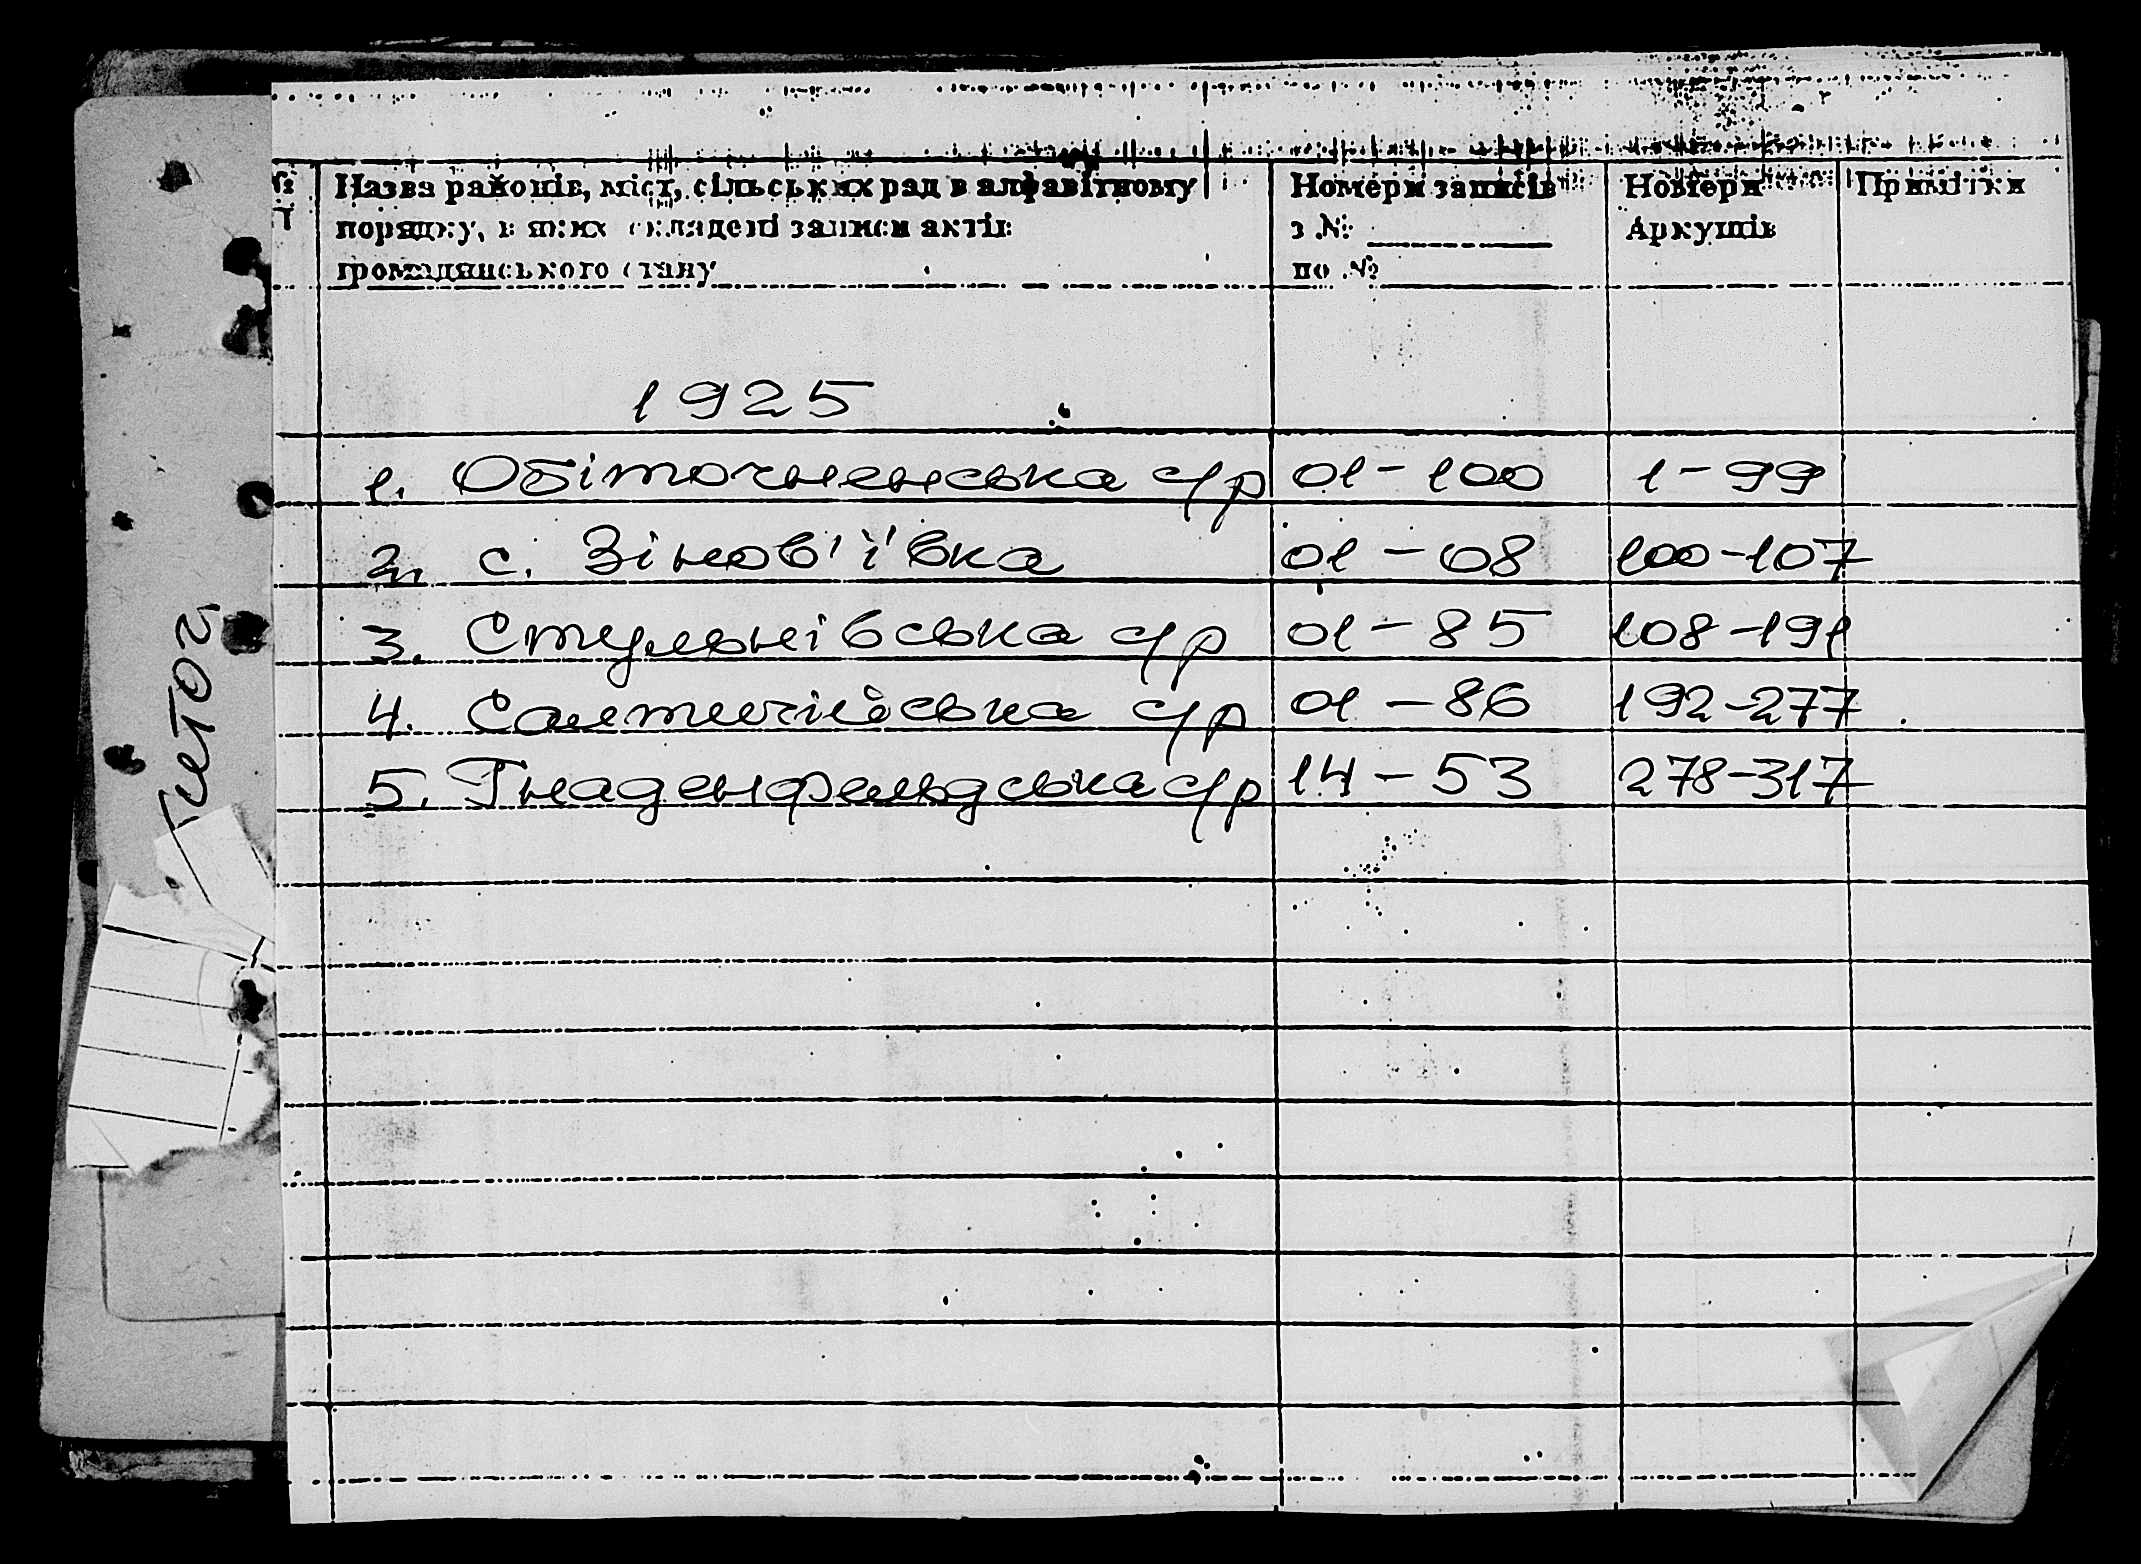 Назва районів, міст, сільських рад в алфавітному
порядку, в яких складені записи актів
громадянського стану
Номери записів
з №
по №
Номери
Аркушів
Примітки
1925
1. Обіточненська с/р 01-100 1-99
2. с. Зінов'ївка 01-08 100-107
3. Стульнівська с/р 01-85 108-191
4. Салтичійська с/р 01-86 192-277
5. Гнаденфельдська с/р 14-53 278-317